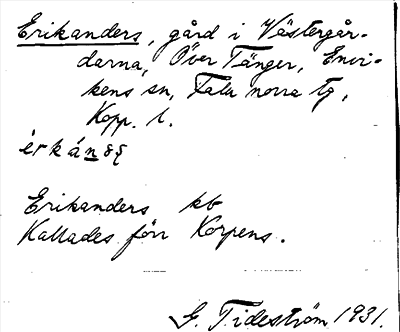 Erikanders, gård i Västergår-
darna, Över Tänger, Envi-
kens sn, Falu norra tg,
Kopp. l.
Erikanders kb
Kallades förr Korpens.
G. Tideström 1931.